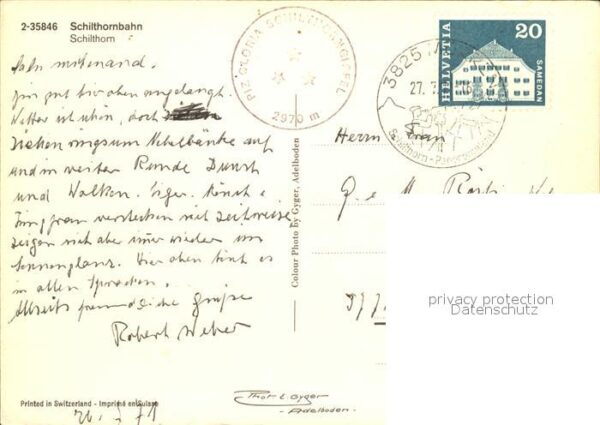 2-35846 Schilthornbahn
Schilthorn
PIZ GLORIA SCHILTHORNGIPFEL
2970 m
HELVETIA
20
SAMEDAN
3825
27. 7.
Schilthorn-Panorama
miteinand.
gut hier oben angelangt.
Wetter ist schön, doch
ziehen ringsum Nebelbänke auf
und in weiter Runde Dunst
und Wolken. Eiger, Mönch &
Jungfrau verstecken sich zeitweise,
zeigen sich aber immer wieder im
Sonnenglanz. Hier oben tönt es
in allen Sprachen.
Allseits freundliche Grüsse
Robert Weber
Herrn Frau
Colour Photo by Gyger, Adelboden
privacy protection
Datenschutz
Printed in Switzerland - Imprimé en Suisse
Phot E. Gyger
Adelboden.